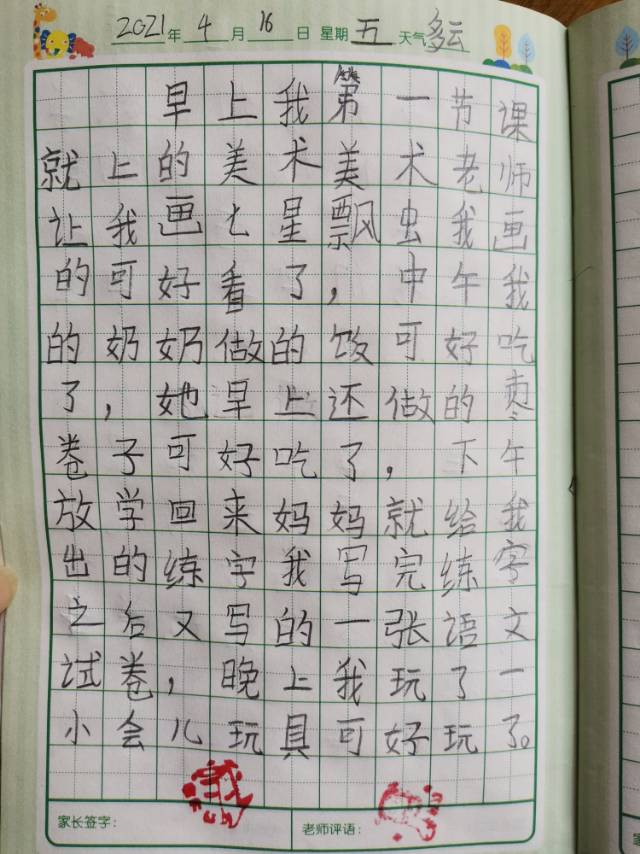 2021年4月16日 星期五 天气多云
早上我第一节课
就上的美术美术老师
让我画七星飘虫我画
的可好看了，中午我
的奶奶做的饭可好吃
了，她早上还做的枣
卷子可好吃了，下午
放学回来妈妈就给我
出的练字我写完练字
之后又写的一张语文
试卷，晚上我玩了一
小会儿玩具可好玩了。
家长签字： 老师评语：